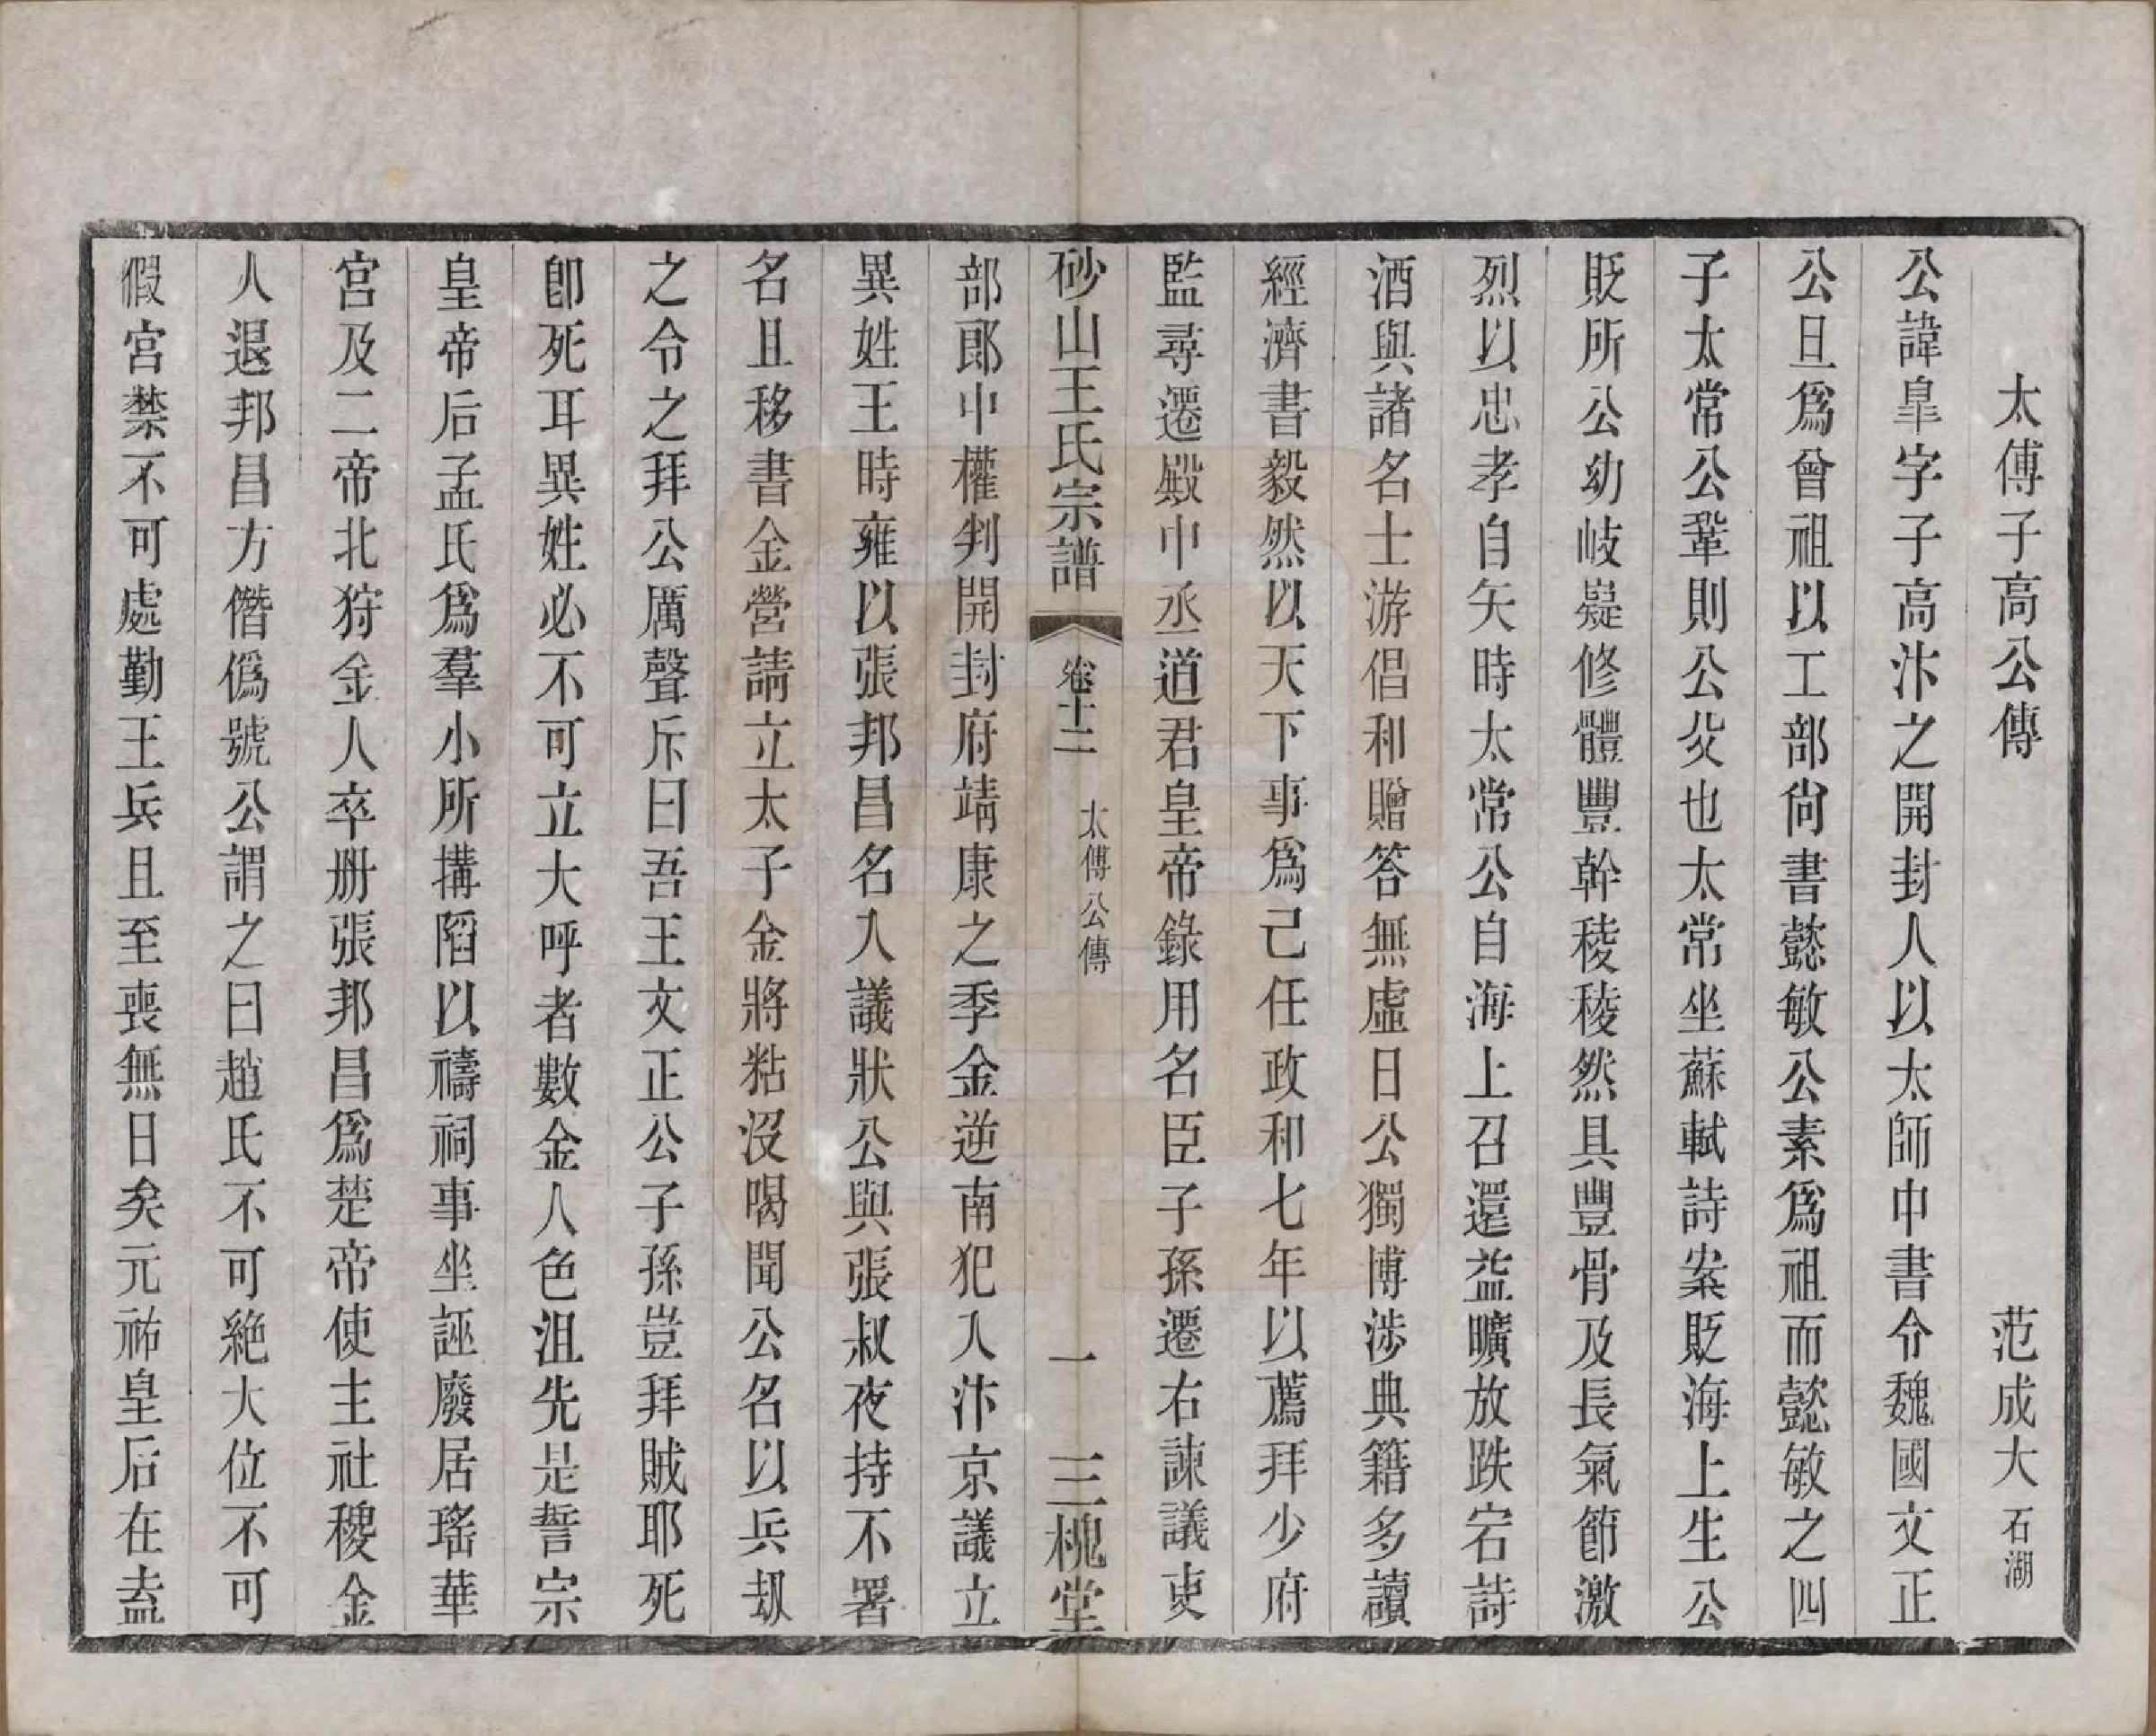 太傅子高公傳　范成大石湖
公諱臯字子高汴之開封人以太師中書令魏國文正
公旦爲曾祖以工部尙書懿敏公素爲祖而懿敏之四
子太常公鞏則公父也太常坐蘇軾詩案貶海上生公
貶所公幼岐嶷修體豐幹稜稜然具豐骨及長氣節激
烈以忠孝自矢時太常公自海上召還益曠放跌宕詩
酒與諸名士游倡和贈答無虛日公獨博涉典籍多讀
經濟書毅然以天下事爲己任政和七年以薦拜少府
監尋遷殿中丞道君皇帝錄用名臣子孫遷右諫議吏
砂山王氏宗譜　卷十二　太傅公傳　一　三槐堂
部郎中權判開封府靖康之季金逆南犯入汴京議立
異姓王時雍以張邦昌名入議狀公與張叔夜持不署
名且移書金營請立太子金將粘沒喝聞公名以兵刼
之令之拜公厲聲斥曰吾王文正公子孫豈拜賊耶死
卽死耳異姓必不可立大呼者數金人色沮先是誓宗
皇帝后孟氏爲羣小所搆陷以禱祠事坐誣廢居瑤華
宮及二帝北狩金人卒册張邦昌爲楚帝使主社稷金
人退邦昌方僭僞號公謂之曰趙氏不可絶大位不可
假宮禁不可處勤王兵且至喪無日矣元祐皇后在盍